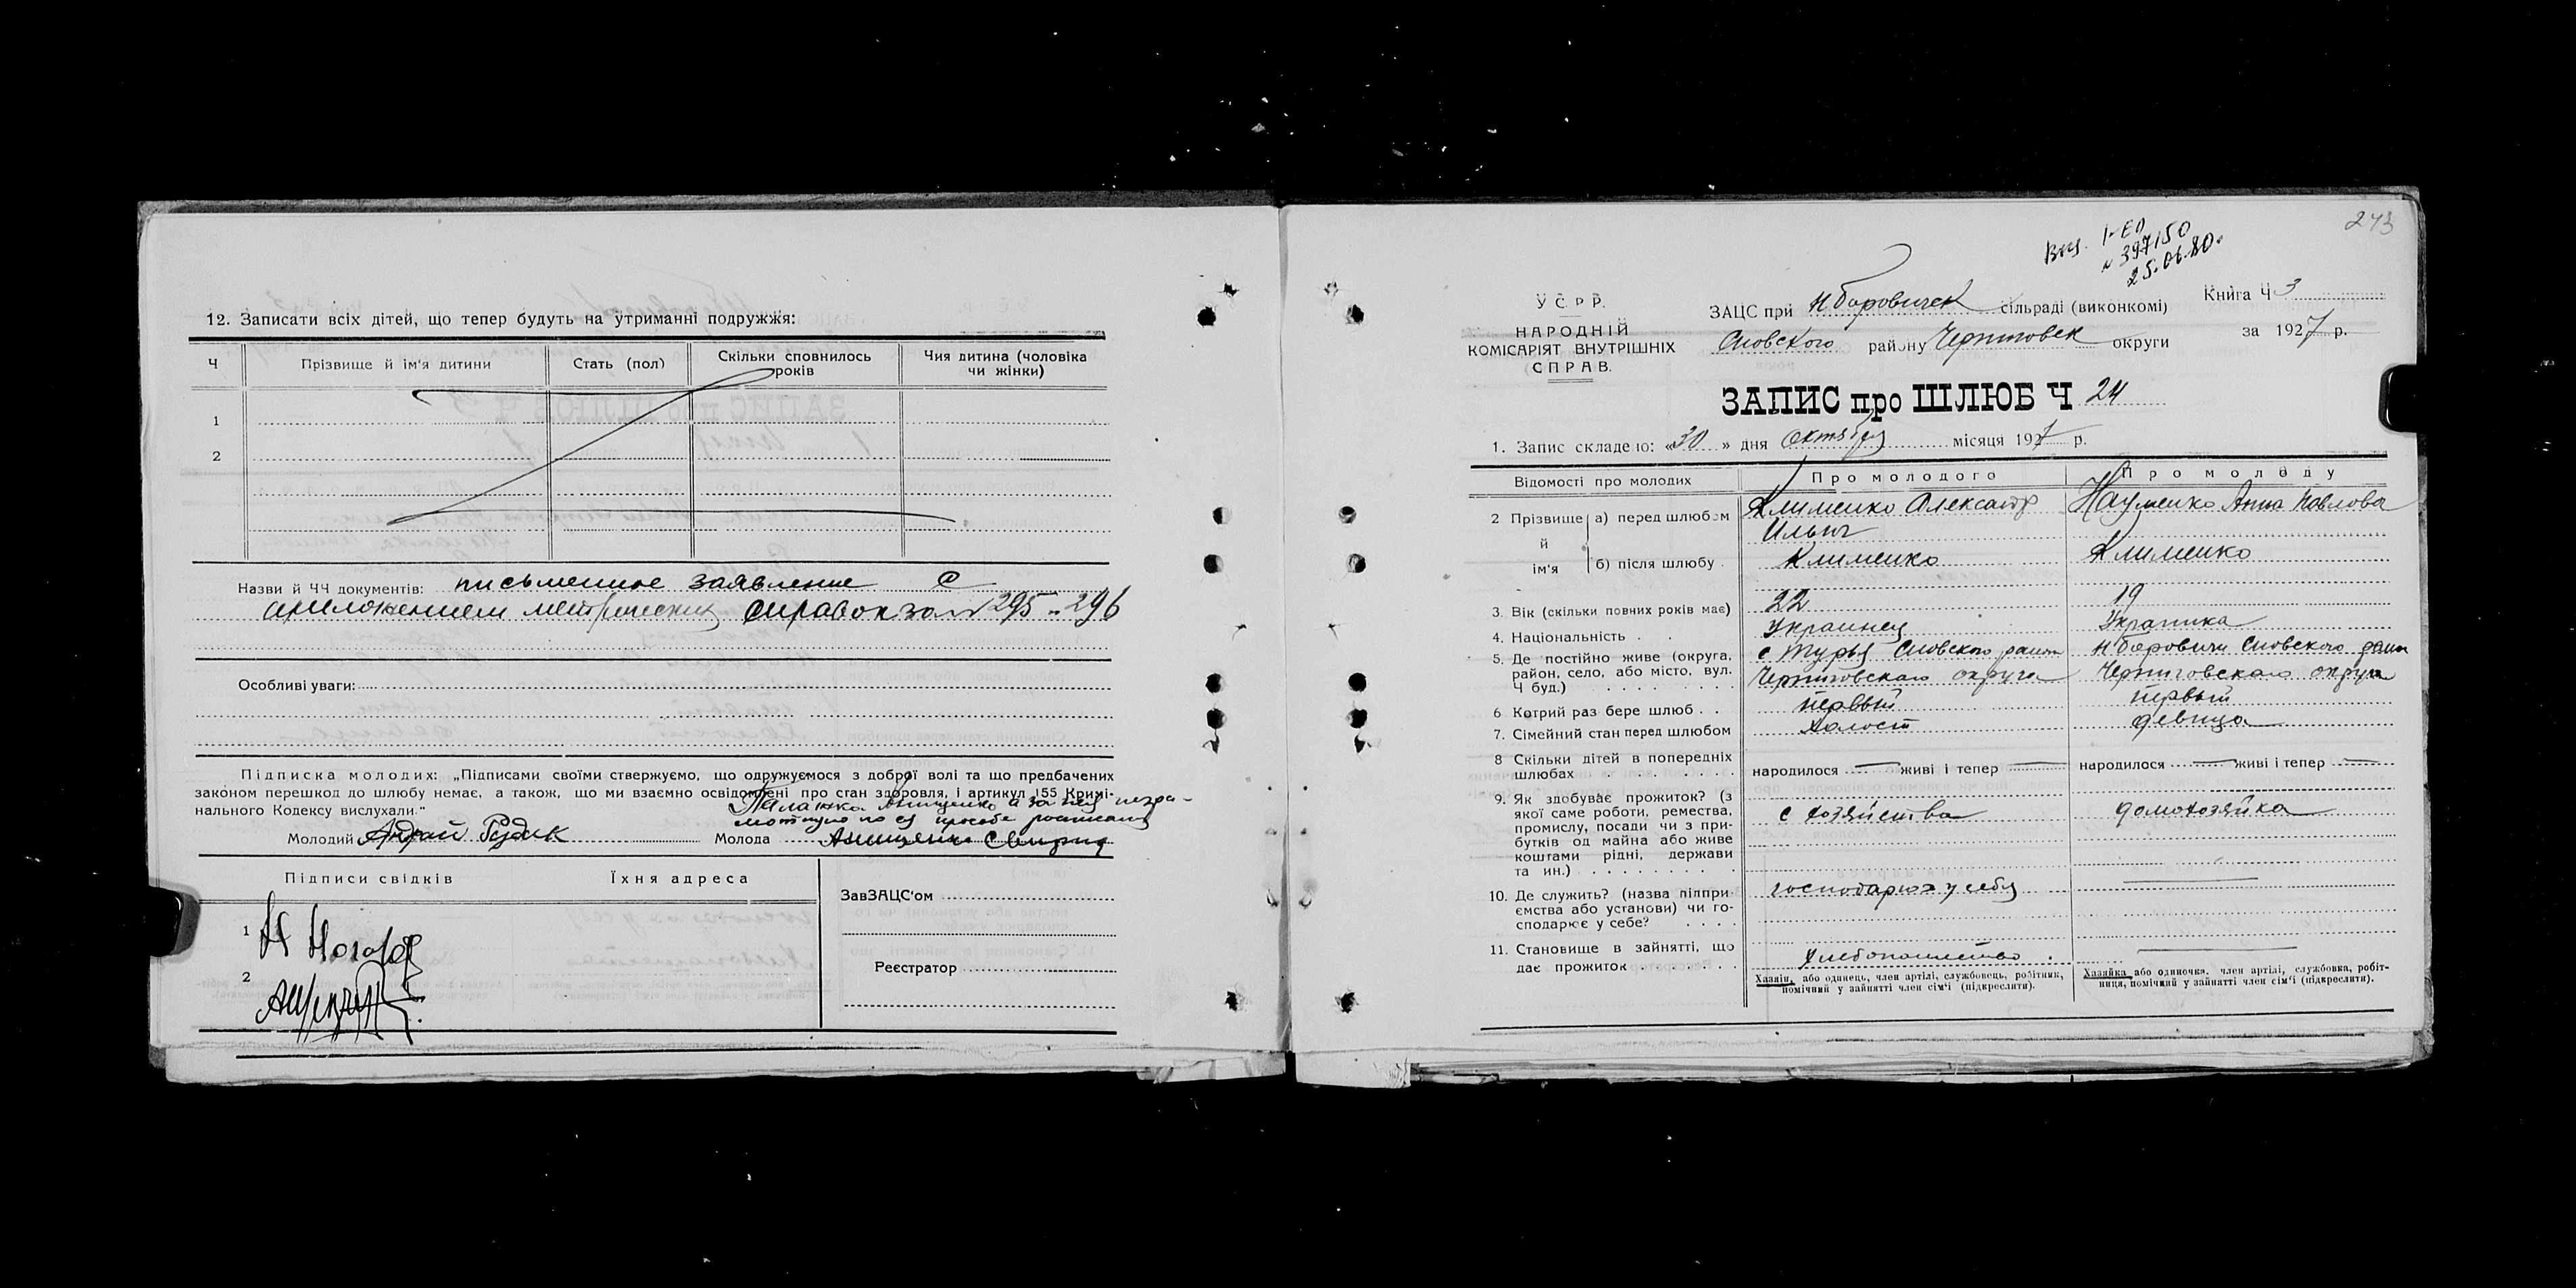 12. Записати всіх дітей, що тепер будуть на утриманні подружжя:
Ч Прізвище й ім'я дитини Стать (пол) Скільки сповнилось років Чия дитина (чоловіка чи жінки)
1
2
Назви й ЧЧ документів: письменное заявление с
приложением метрических справок за № 295 - 296
Особливі уваги:
Підписка молодих: „Підписами своїми ствержуємо, що одружуємося з доброї волі та що предбачених
законом перешкод до шлюбу немає, а також, що ми взаємно освідомлені про стан здоровля, і артикул 155 Кримі-
нального Кодексу вислухали."
Анищенко а за нея негра-
мотную по ея просьбе
Молодий Андрей Рудик Молода Анищенко
Підписи свідків Їхня адреса
ЗавЗАЦС'ом
1
2
Реєстратор
243
1-ЕЛ
№ 397150
25.06.80.
У С Р Р.
НАРОДНІЙ
КОМІСАРІЯТ ВНУТРІШНІХ
СПРАВ.
ЗАЦС при Н Боровичск сільраді (виконкомі)
Сновского району Черниговск округи
Книга Ч 3
за 1927 р.
ЗАПИС про ШЛЮБ Ч 24
1. Запис складено: «30» дня Октября місяця 1927 р.
Відомості про молодих Про молодого Про молоду
2 Прізвище й ім'я а) перед шлюбом Клименко Александр Ильич Науменко Анна Павлова
б) після шлюбу Клименко Клименко
3. Вік (скільки повних років має) 22 19
4. Національність Украинец Украинка
5. Де постійно живе (округа, район, село, або місто, вул. Ч буд.) с Турья Сновского района Черниговского округа Н Боровичи Сновского района Черниговского округа
6 Котрий раз бере шлюб первый первый
7. Сімейний стан перед шлюбом холост девица
8 Скільки дітей в попередніх шлюбах народилося — живі і тепер — народилося — живі і тепер —
9. Як здобуває прожиток? (з якої саме роботи, ремества, промислу, посади чи з прибутків од майна або живе коштами рідні, держави та ин.) с хозяйства домохозяйка
10. Де служить? (назва підприємства або установи) чи господарює у себе? господарює у себе
11. Становище в зайнятті, що дає прожиток Хлебопашество
Хазяін, або одинець, член артілі, службовець, робітник, помічний у зайнятті член сім'ї (підкреслити).
Хазяйка або одиночка, член артілі, службовка, робітниця, помічний у зайнятті член сім'ї (підкреслити).